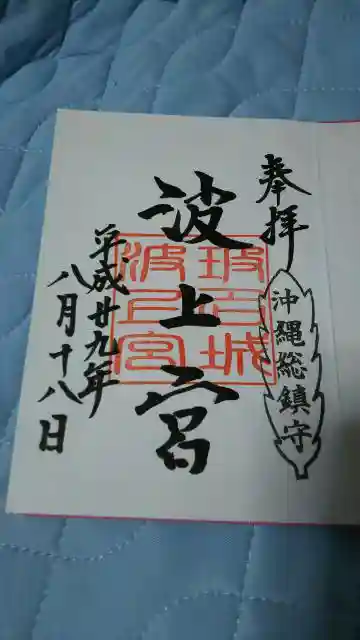 奉拝
沖縄総鎮守
波上宮
玻名城
波上宮
平成廿九年
八月十八日